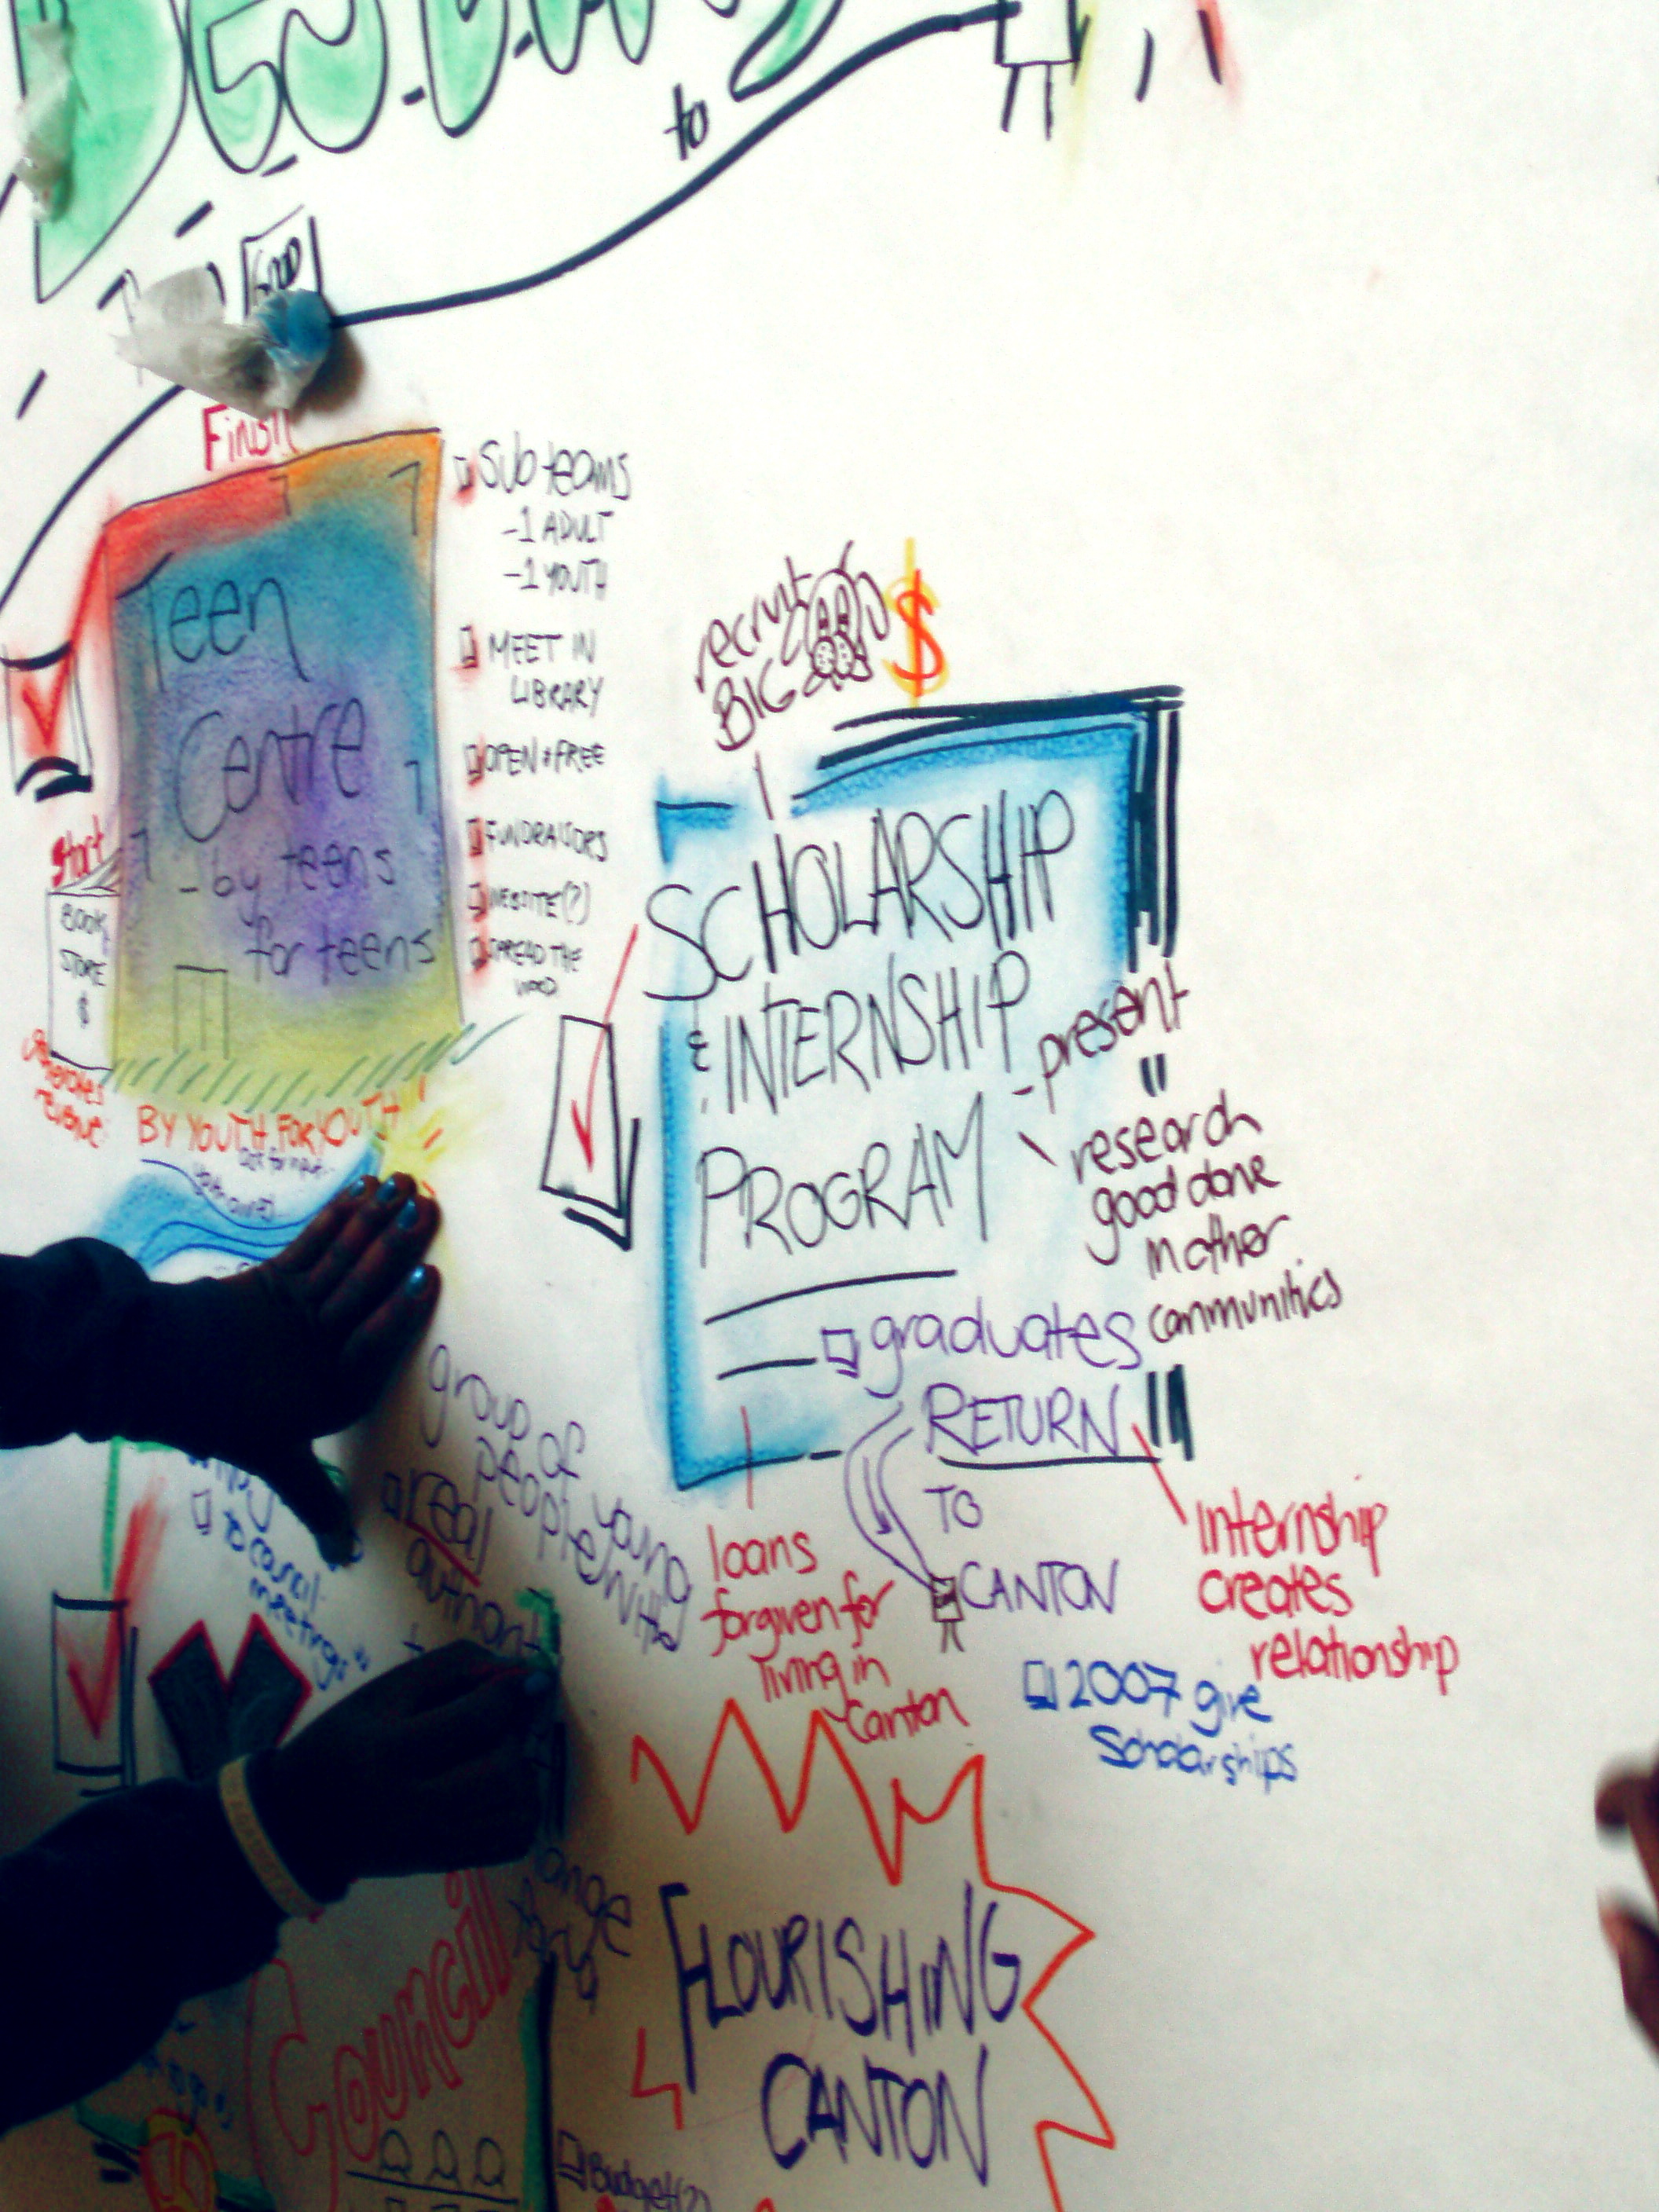 to
Finish
Teen
Centre
- by teens
for teens
Sub teams
-1 ADULT
-1 YOUTH
MEET IN
LIBRARY
OPEN & FREE
FUNDRAISORS
WEBSITE(?)
SPREAD THE
WORD
Start
BOOK
STORE
$
BY YOUTH FOR YOUTH
recruit
BIG
$
SCHOLARSHIP
& INTERNSHIP
PROGRAM
- present
research
good done
in other
communities
graduates
RETURN
TO
CANTON
loans
forgiven for
living in
Canton
Internship
creates
relationship
2007 give
Scholarships
group of
young
people with
real
to council
meetings
Council
FLOURISHING
CANTON
Budget(?)